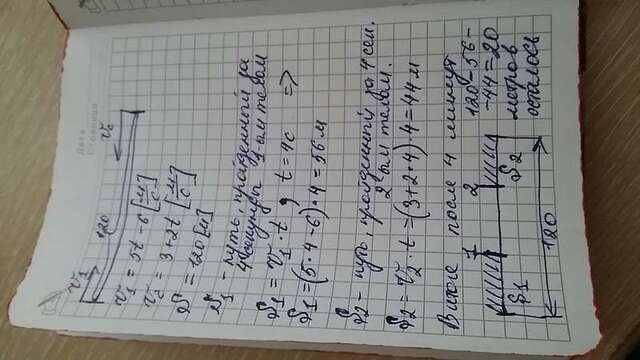 Дата
Страница
v₁
120
v₂
v₁ = 5t - 6 [м/с]
v₂ = 3 + 2t [м/с]
S = 120 [м]
S₁ - путь, пройденный за
4 секунды 1-ым телом
S₁ = v₁ · t, t = 4c =>
S₁ = (5 · 4 - 6) · 4 = 56 м
S₂ - путь, пройденный за 4 сек.
2 ым телом.
S₂ = v₂ · t = (3 + 2 · 4) · 4 = 44 м
В итоге после 4 минут
1 2
S₁ S₂
120
120 - 56 -
- 44 = 20
метров
осталось